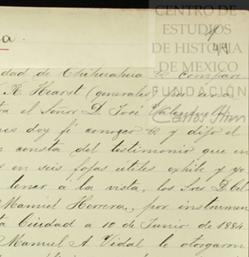 CENTRO DE
ESTUDIOS
DE HISTORIA
DE MEXICO
FUNDACIÓN
Carlos Slim
dad de Chihuahua
R. Hearst (generales
el Señor D. José
doy fé conozco y dijo el
consta del testimonio que en
en seis fojas útiles exhibe y yo
tener á la vista, los Sres D.
Manuel Herrera, por instrumen
ta Ciudad a 10 de Junio de 1884
Manuel A. Vidal le otorgaron